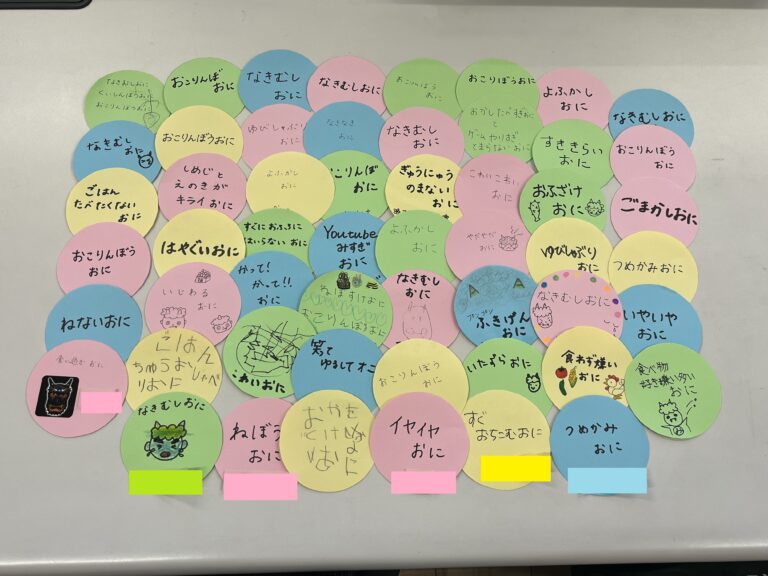 なきむしおに
くいしんぼうおに
おこりんぼうおに
おこりんぼ
おに
なきむし
おに
なきむしおに
おこりんぼう
おに
おこりぼうおに
おかしたべすぎおに
と
ゲームやりすぎ
てとまらないおに
よふかし
おに
なきむしおに
なきむし
おに
おこりんぼうおに
ゆびしゃぶり
おに
なきなき
おに
なきむし
おに
すききらい
おに
おこりんぼう
おに
ごはん
たべたくない
おに
しめじと
えのきが
キライおに
よふかし
おに
おこりんぼ
おに
ぎゅうにゅう
のまない
おに
こわいこわい
おに
おふざけ
おに
ごまかしおに
おこりんぼう
おに
はやぐいおに
すぐにおふろに
はいらないおに
Youtube
みすぎ
おに
よふかし
おに
やだやだ
おに
ゆびしゃぶり
おに
つめかみおに
ねないおに
いじわる
おに
かって!
かって!!
おに
ねぼすけおに
おこりんぼうおに
なきむし
おに
プンプン
ふきげん
おに
なきむしおにこ
いやいや
おに
おに
ごはん
ちゅうおしゃべ
りおに
こわいおに
笑って
ゆるしてオニ
おこりんぼう
おに
いたずらおに
食わず嫌い
おに
食べ物
好き嫌い多い
おに
なきむしおに
ねぼう
おに
イヤイヤ
おに
すぐ
おちこむおに
つめかみ
おに